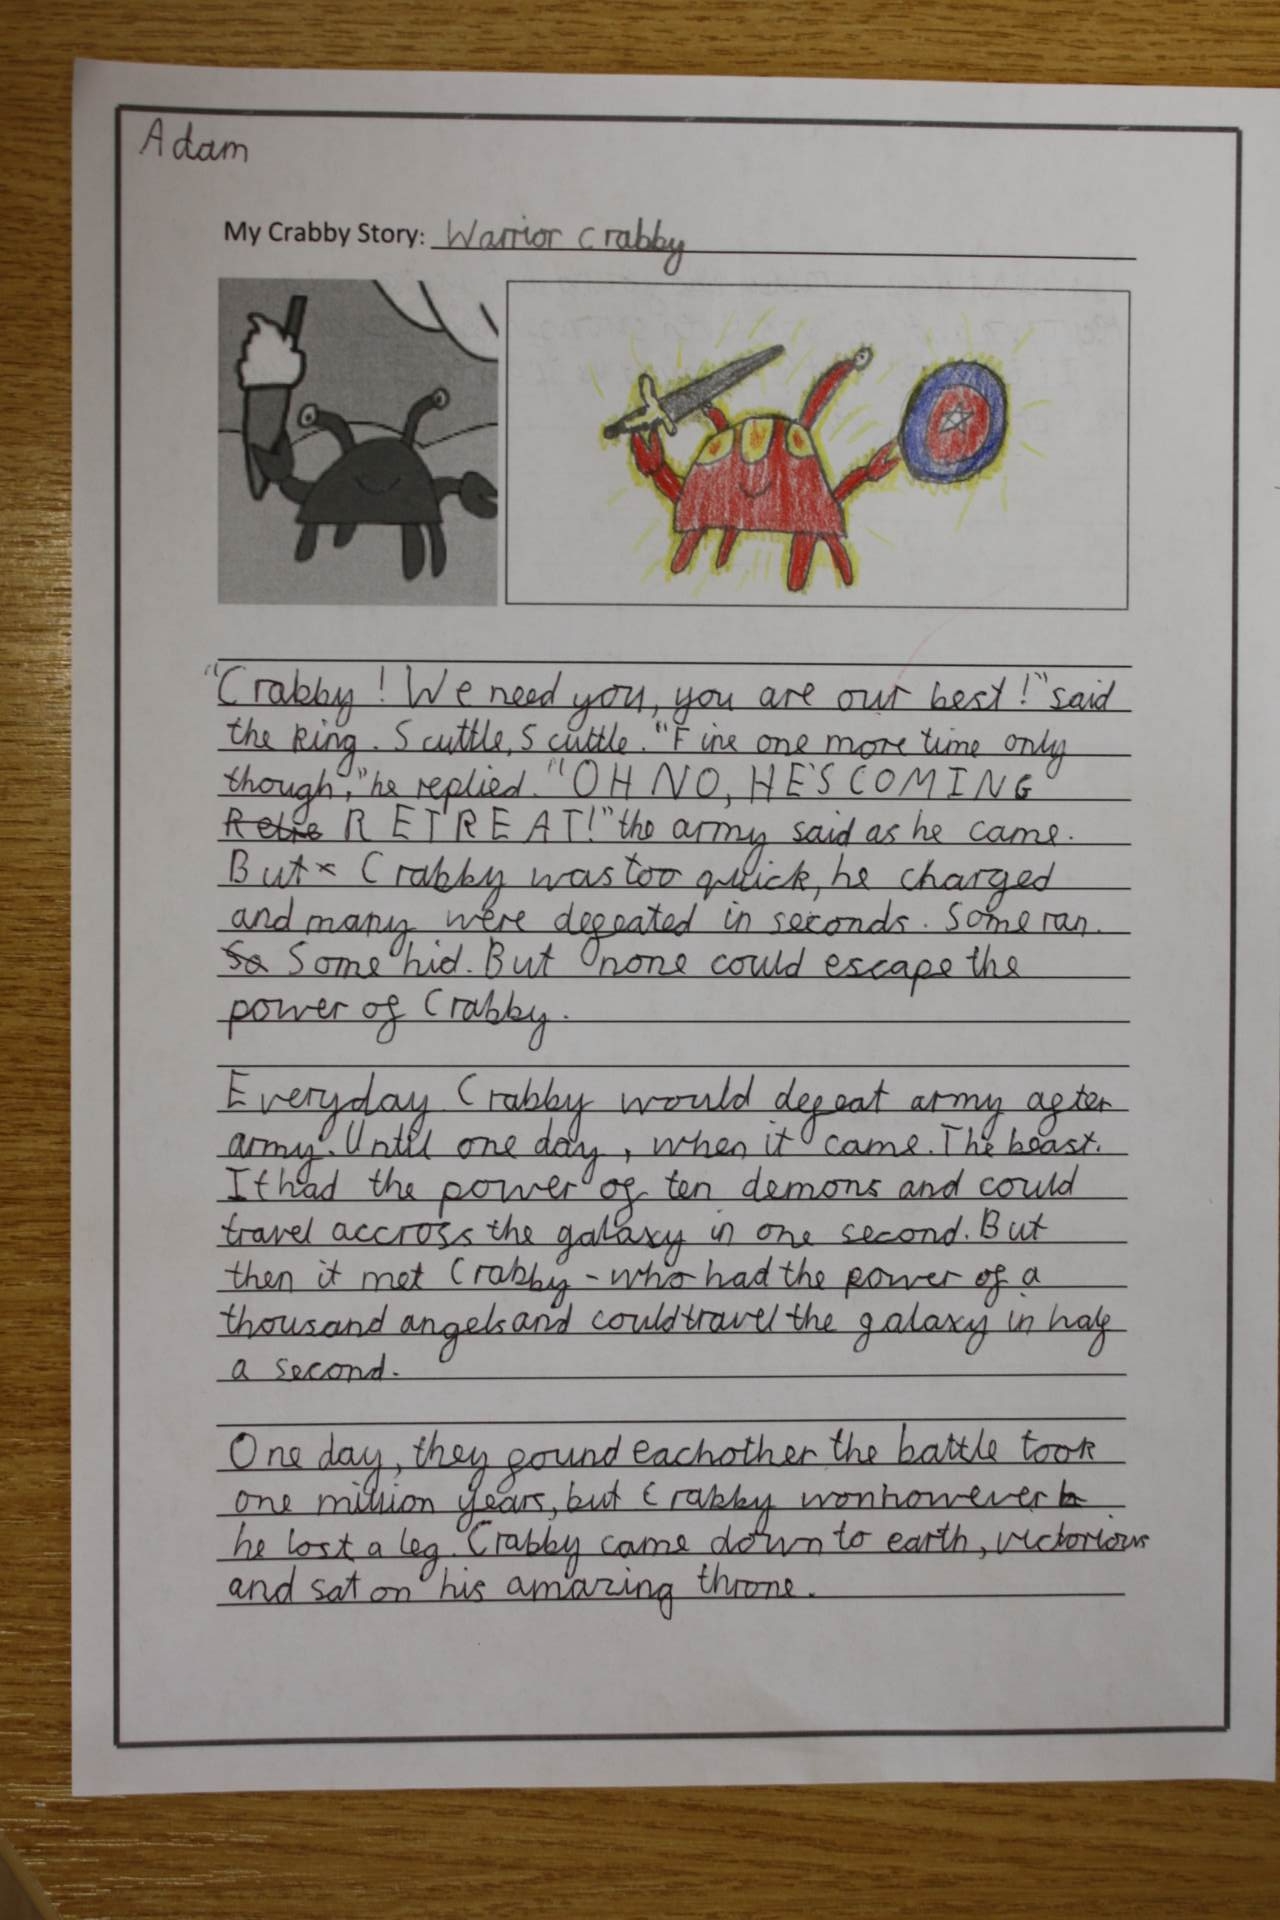 Adam
My Crabby Story: Warrior crabby
"Crabby! We need you, you are our best!" said
the king. Scuttle, Scuttle. "Fine one more time only
though," he replied. "OH NO, HE'S COMING
Retre RETREAT!" the army said as he came.
But Crabby was too quick, he charged
and many were defeated in seconds. Some ran.
So Some hid. But none could escape the
power of Crabby.
Everyday Crabby would defeat army after
army. Until one day, when it came. The beast.
It had the power of ten demons and could
travel accross the galaxy in one second. But
then it met Crabby - who had the power of a
thousand angels and could travel the galaxy in half
a second.
One day, they found eachother the battle took
one million years, but Crabby won however
he lost a leg. Crabby came down to earth, victorious
and sat on his amazing throne.